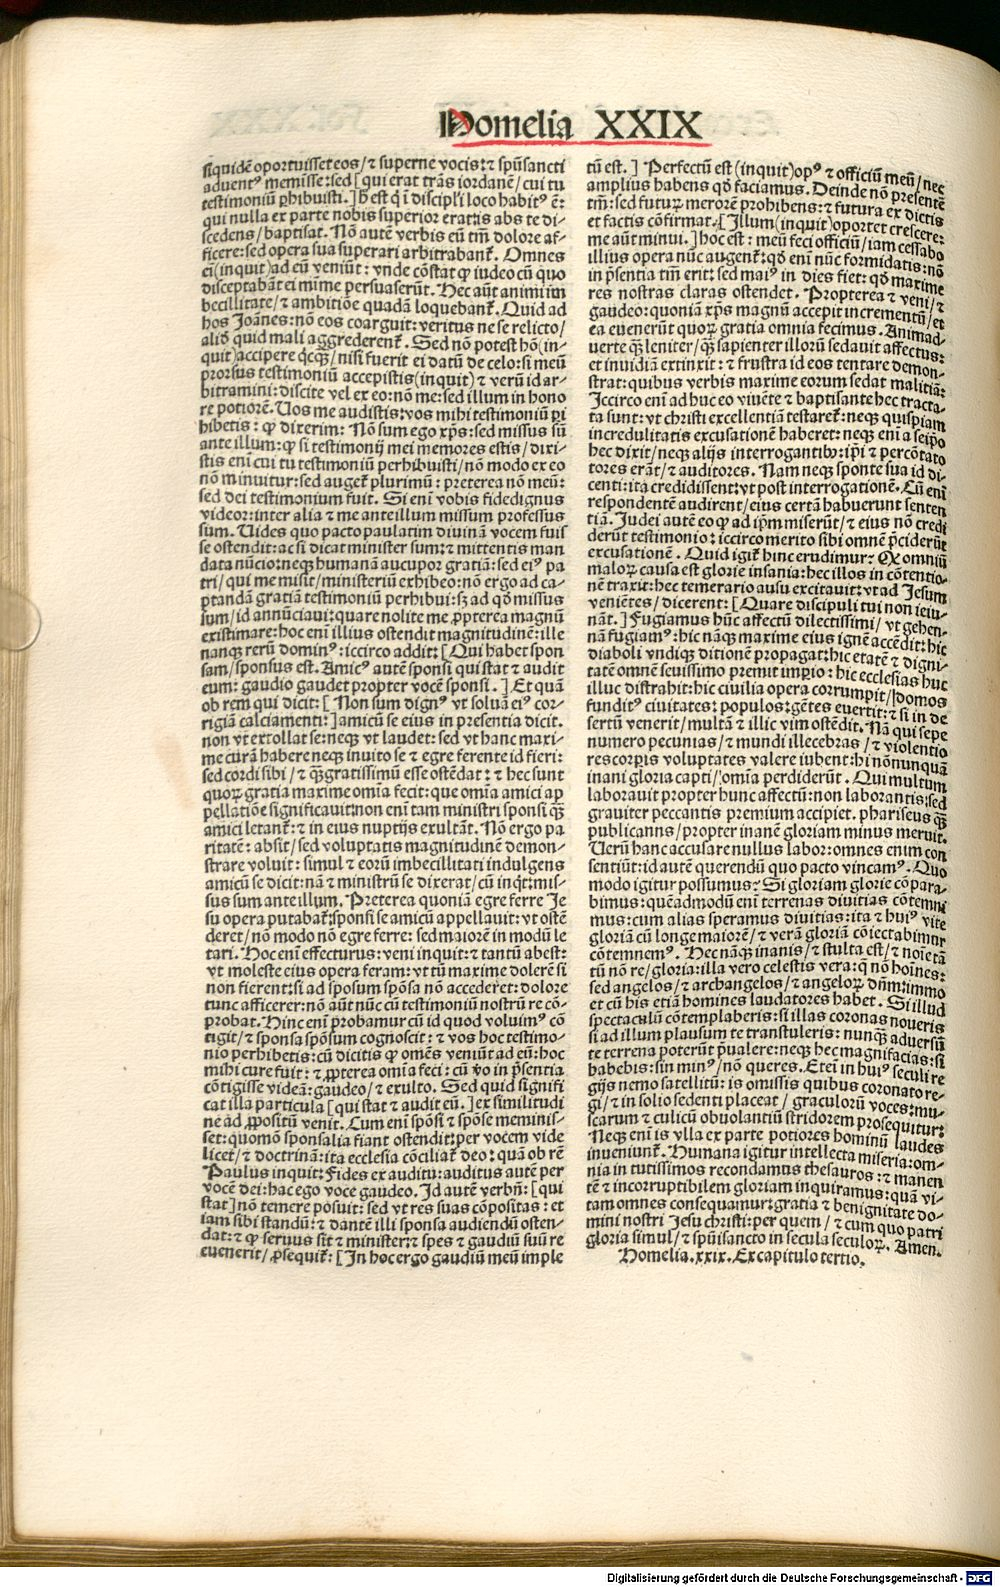 Homelia XXIX
siquidē oportuisset eos/ ⁊ superne vocis: ⁊ spūsancti
aduentꝰ memisse: sed [qui erat trās iordanē/ cui tu
testimoniū ꝑhibuisti.] h̄ est q̄ ī discipl'i loco habitꝰ ē:
qui nulla ex parte nobis superior eratis abs te di-
scedens/ baptisat. Nō autē verbis eū tm̄ dolore af-
ficere: sed opera sua superari arbitrabant̄. Omnes
ei (inquit) ad eū veniūt: vnde cōstat ꝙ iudeo cū quo
disceptabāt ei mīme persuaserūt. Hec aūt animi im
becillitate/ ⁊ ambitiōe quadā loquebant̄. Quid ad
hos Joānes: nō eos coarguit: veritus ne se relicto/
aliō quid mali aggrederent̄. Sed nō potest hō (in-
quit) accipere q̄cq̄ꝫ/ nisi fuerit ei datū de celo: si meū
prorsus testimoniū accepistis (inquit) ⁊ verū id ar-
bitramini: discite vel ex eo: nō me: sed illum in hono
re potiorē. Uos me audistis: vos mihi testimoniū ꝑ
hibetis: ꝙ dixerim: Nō sum ego xp̄s: sed missus sū
ante illum: ꝙ si testimonij mei memores estis/ dixi-
stis enī cui tu testimoniū perhibuisti/ nō modo ex eo
nō minuitur: sed auget̄ plurimū: preterea nō meū:
sed dei testimonium fuit. Si enī vobis fidedignus
videor: inter alia ⁊ me ante illum missum professus
sum. Uides quo pacto paulatim diuinā vocem fuis
se ostendit: ac si dicat minister sum: ⁊ mittentis man
data nūcio: neqꝫ humanā aucupor gratiā: sed eiꝰ pa
tri/ qui me misit/ ministeriū exhibeo: nō ergo ad ca-
ptandā gratiā testimoniū perhibui: sꝫ ad qd̄ missus
sum/ id annūciaui: quare nolite me ꝓpterea magnū
existimare: hoc enī illius ostendit magnitudinē: ille
nanqꝫ rerū dominꝰ: iccirco addit: [Qui habet spon
sam/ sponsus est. Amicꝰ autē sponsi qui stat ⁊ audit
eum: gaudio gaudet propter vocē sponsi.] Et quā
ob rem qui dicit: [Non sum dignꝰ vt soluā eiꝰ cor-
rigiā calciamenti:] amicū se eius in presentia dicit.
non vt extollat se: neqꝫ vt laudet: sed vt hanc maxi-
me curā habere neqꝫ inuito se ⁊ egre ferente id fieri:
sed cordi sibi/ ⁊ q̄ꝫ gratissimū esse ostēdat: ⁊ hec sunt
quoꝝ gratia maxime omīa fecit: que omīa amici ap
pellatiōe significauit: non enī tam ministri sponsi q̄ꝫ
amici letant̄: ⁊ in eius nuptijs exultāt. Nō ergo pa
ritatē: absit/ sed voluptatis magnitudinē demon-
strare voluit: simul ⁊ eorū imbecillitati indulgens
amicū se dicit: nā ⁊ ministrū se dixerat/ cū inq̄t: mis-
sus sum ante illum. Preterea quoniā egre ferre Je
su opera putabāt: sponsi se amicū appellauit: vt ostē
deret/ nō modo nō egre ferre: sed maiorē in modū le
tari. Hoc enī effecturus: veni inquit: ⁊ tantū abest:
vt moleste eius opera feram: vt tū maxime dolerē si
non fierent: si ad sposum spōsa nō accederet: dolore
tunc afficerer: nō aūt nūc cū testimoniū nostrū re cō-
probat. Hinc enī probamur cū id quod voluimꝰ cō
tigit/ ⁊ sponsa spōsum cognoscit: ⁊ vos hoc testimo-
nio perhibetis: cū dicitis ꝙ omēs veniūt ad eū: hoc
mihi cure fuit: ⁊ ꝓpterea omīa feci: cū v̄o in p̄sentia
cōtigisse videā: gaudeo/ ⁊ exulto. Sed quid signifi
cat illa particula [qui stat ⁊ audit eū.] ex similitudi
ne ad ꝓpositū venit. Cum eni spōsi ⁊ spōse meminis-
set: quomō sponsalia fiant ostendit: per vocem vide
licet/ ⁊ doctrinā: ita ecclesia cōciliat̄ deo: quā ob rē
Paulus inquit: Fides ex auditu: auditus autē per
vocē dei: hac ego voce gaudeo. Id autē verbū: [qui
stat] nō temere posuit: sed vt res suas cōpositas: et
iam sibi standū: ⁊ dantē illi sponsa audiendū osten-
dat: ⁊ ꝙ seruus sit ⁊ minister: ⁊ spes ⁊ gaudiū suū re
euenerit/ ꝓsequit̄: [In hoc ergo gaudiū meū imple
tū est.] Perfectū est (inquit) opꝰ ⁊ officiū meū/ nec
amplius habens qd̄ faciamus. Deinde nō presentē
tm̄: sed futuꝝ merorē prohibens: ⁊ futura ex dictis
et factis cōfirmat. [Illum (inquit) oportet crescere:
me aūt minui.] hoc est: meū feci officiū/ iam cessabo
illius opera nūc augent̄: qd̄ enī nūc formidatis: nō
in p̄sentia tm̄ erit: sed maiꝰ in dies fiet: qd̄ maxime
res nostras claras ostendet. Propterea ⁊ veni/ ⁊
gaudeo: quoniā xp̄s magnū accepit incrementū/ et
ea euenerūt quoꝝ gratia omnia fecimus. Animad-
uerte q̄ꝫ leniter/ q̄ꝫ sapienter illorū sedauit affectus:
et inuidiā extinxit: ⁊ frustra id eos tentare demon-
strat: quibus verbis maxime eorum sedat malitiā:
Iccirco enī ad huc eo viuēte ⁊ baptisante hec tracta-
ta sunt: vt christi excellentiā testaret̄: neqꝫ quispiam
incredulitatis excusationē haberet: neqꝫ eni a seip̄o
hec dixit/ neqꝫ alijs interrogantibꝰ: ip̄i ⁊ percōtato
tores erāt/ ⁊ auditores. Nam neqꝫ sponte sua id di-
centi: ita credidissent: vt post interrogationē. Cū enī
respondentē audirent/ eius certā habuerunt senten
tiā. Judei autē eo ꝙ ad ip̄m miserūt/ ⁊ eius nō credi
derūt testimonio: iccirco merito sibi omnē p̄ciderūt
excusationē. Quid igit̄ hinc erudimur: Ex omniū
maloꝝ causa est glorie insania: hec illos in cōtentio-
nē traxit: hec temerario ausu excitauit: vt ad Jesum
veniētes/ dicerent: [Quare discipuli tui non ieiu-
nāt.] Fugiamus hūc affectū dilectissimi/ vt gehen-
nā fugiamꝰ: hic nāqꝫ maxime eius ignē accēdit: hic
diaboli vndiqꝫ ditionē propagat: hic etatē ⁊ digni-
tatē omnē seuissimo premit imꝑio: hic ecclesias huc
illuc distrahit: hic ciuilia opera corrumpit/ domos
fundit̄ ciuitates: populos: gētes euertit: ⁊ si in de
sertū venerit/ multā ⁊ illic vim ostēdit. Nā qui sepe
numero pecunias/ ⁊ mundi illecebras/ ⁊ violentio
res corꝑis voluptates valere iubent: hi nō nunquā
inani gloria capti/ omīa perdiderūt. Qui multum
laborauit propter hunc affectū: non laborantis: sed
grauiter peccantis premium accipiet. phariseus q̄ꝫ
publicanns/ propter inanē gloriam minus meruit.
Uerū hanc accusare nullus labor: omnes enim con
sentiūt: id autē querendū quo pacto vincamꝰ. Quo
modo igitur possumus: Si gloriam glorie cōpara-
bimus: quēadmodū eni terrenas diuitias cōtemni
mus: cum alias speramus diuitias: ita ⁊ huiꝰ vite
gloriā cū longe maiorē/ ⁊ verā gloriā cōiectabimur
cōtemnemꝰ. Hec nāqꝫ inanis/ ⁊ stulta est/ ⁊ noīe tā
tū nō re/ gloria: illa vero celestis vera: q̄ nō hoīnes:
sed angelos/ ⁊ archangelos/ ⁊ angeloꝝ dn̄m: immo
et cū his etiā homines laudatores habet. Si illud
spectaculū cōtemplaberis: si illas coronas noueris
si ad illum plausum te transtuleris: nunq̄ꝫ aduersū
te terrena poterūt p̄ualere: neqꝫ hec magnifacias: si
habebis: sin minꝰ/ nō queres. Etei in huiꝰ seculi re
gijs nemo satellitū: is omissis quibus coronato re-
gi/ ⁊ in solio sedenti placeat/ graculorū voces: mu-
scarum ⁊ culicū obuolantiū stridorem prosequitur:
Neqꝫ enī is vlla ex parte potiores hominū laudes
inueniunt̄. Humana igitur intellecta miseria: om-
nia in tutissimos recondamus thesauros: ⁊ manen
tē ⁊ incorruptibilem gloriam inquiramus: quā vi-
tam omnes consequamur: gratia ⁊ benignitate do-
mini nostri Jesu christi: per quem/ ⁊ cum quo patri
gloria simul/ ⁊ spūisancto in secula seculoꝝ. Amen.
Homelia. xxix. Ex capitulo tertio.
Digitalisierung gefördert durch die Deutsche Forschungsgemeinschaft - DFG